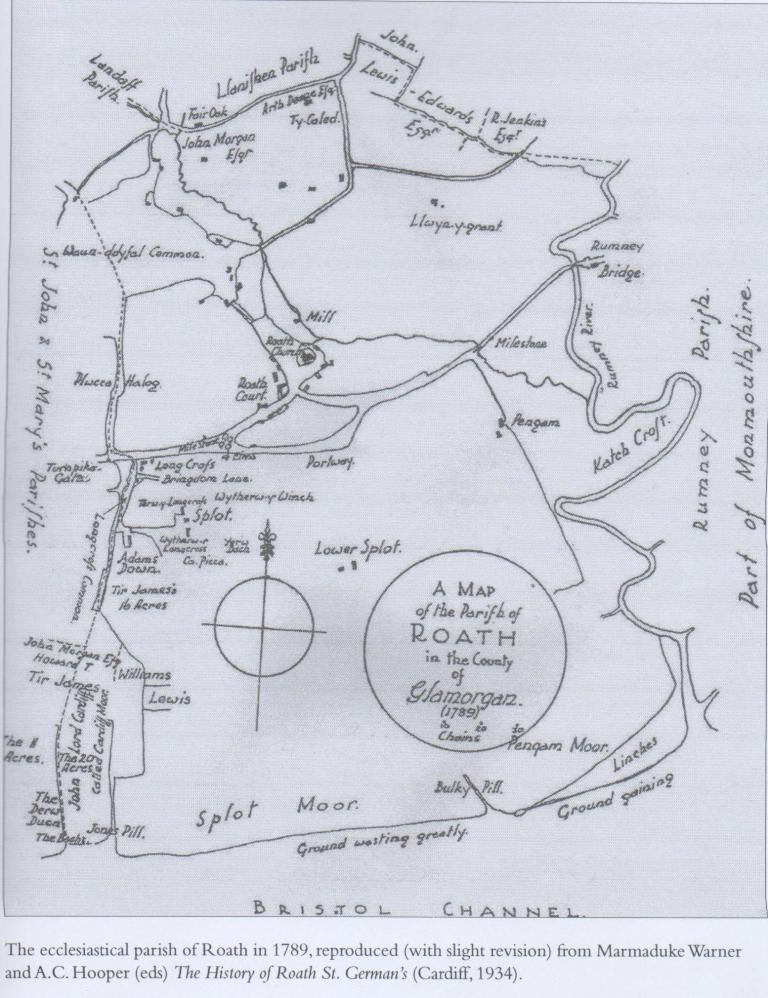 John.
Lewis
Landaff
Parish.
Llanishen Parish
Edwards
Esqr
R. Jenkins
Esqr
Fair Oak
Ty-Caled.
John Morgan
Esqr
Llwyn-y-grant.
Waun-ddyfal Common.
Rumney
Bridge.
Mill
Roath
Rumney River.
Milestone
Roath
Court.
Plucca Halog.
Pengam
Katch Croft.
Rumney Parish.
Part of Monmouthshire.
St John & St Mary's Parishes.
4 Elms
Portway.
Turnpike
Gate.
Long Crofs
Wytherwy Winch
Splot.
Longcross Common
Adams
Down.
Lower Splot.
Tir James's
16 Acres
A MAP
of the Parish of
ROATH
in the County
of
Glamorgan.
(1789)
Chains
John Morgan Esq
Howard
Tir James
Williams
Lewis
John Lord Cardiff
called Cardiff Moor.
The 8
Acres.
The 20
Acres
The
Jones Pill.
Pengam Moor.
Linches
Ground gaining
Bulky Pill.
Splot Moor.
Ground wasting greatly.
BRISTOL CHANNEL.
The ecclesiastical parish of Roath in 1789, reproduced (with slight revision) from Marmaduke Warner
and A.C. Hooper (eds) The History of Roath St. German's (Cardiff, 1934).